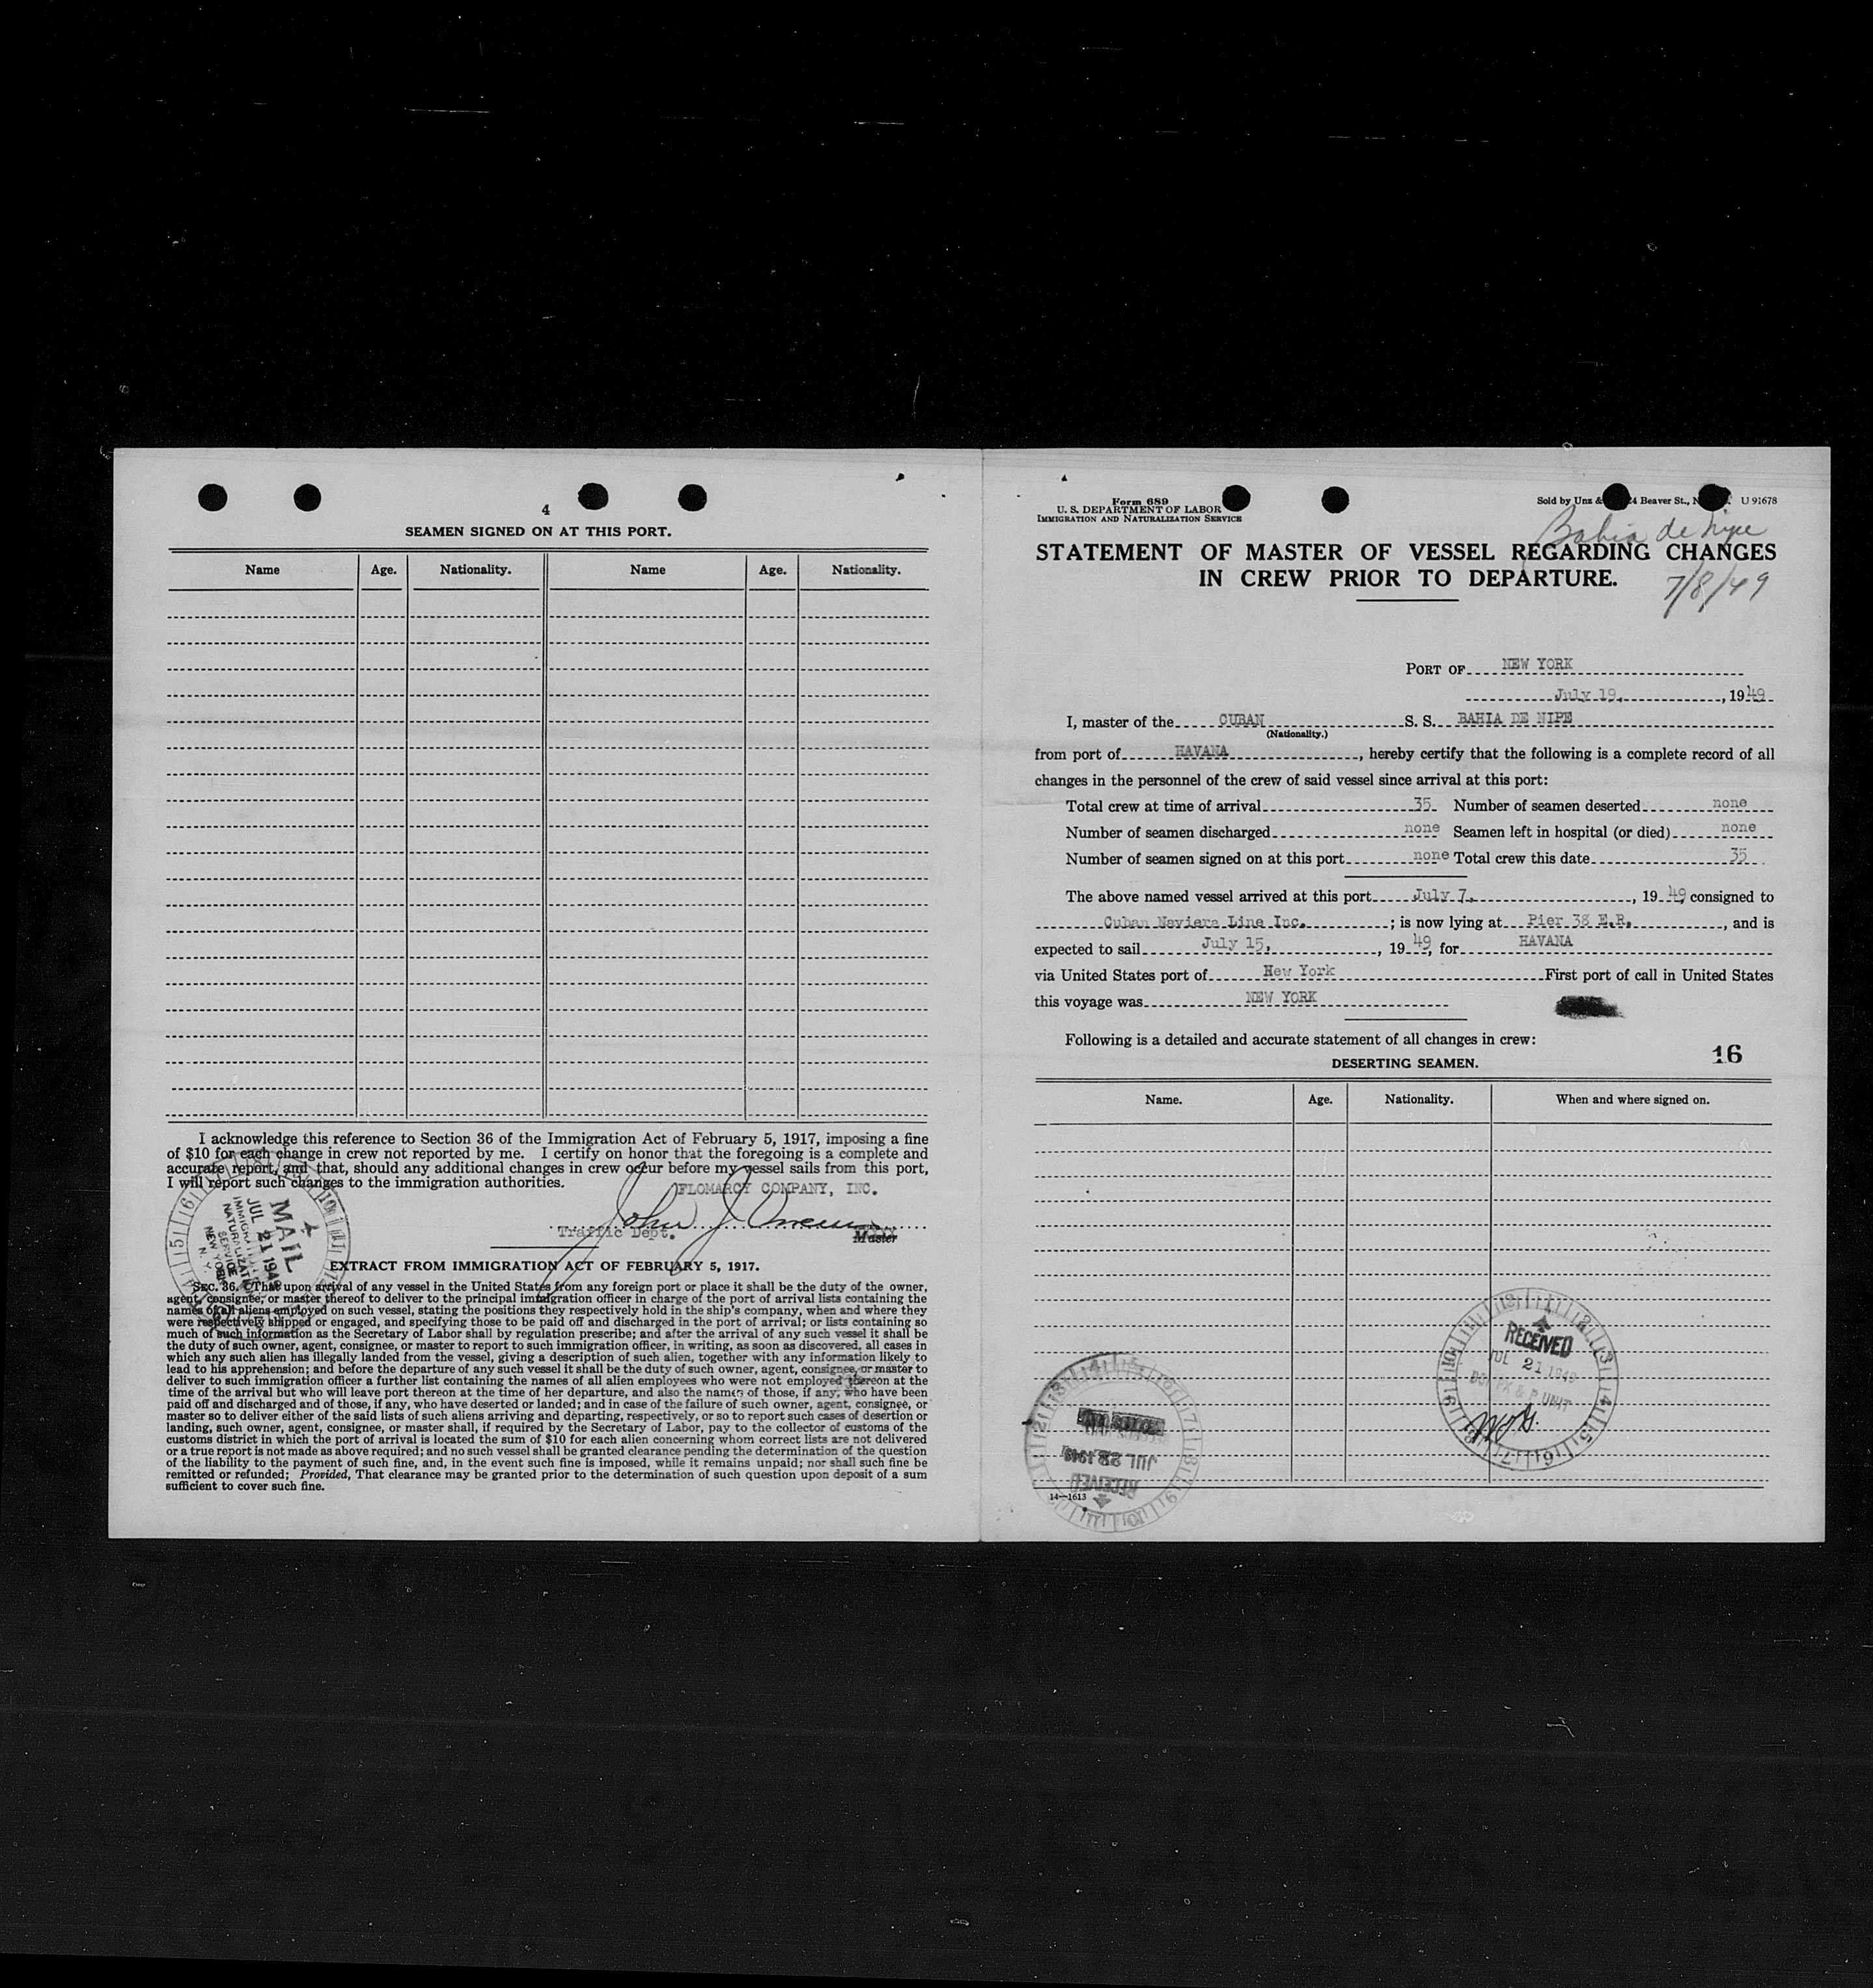 4
SEAMEN SIGNED ON AT THIS PORT.
Name Age. Nationality. Name Age. Nationality.
I acknowledge this reference to Section 36 of the Immigration Act of February 5, 1917, imposing a fine
of $10 for each change in crew not reported by me. I certify on honor that the foregoing is a complete and
accurate report, and that, should any additional changes in crew occur before my vessel sails from this port,
I will report such changes to the immigration authorities.
FLOMARCY COMPANY, INC.
John J.
Traffic Dept. Master
MAIL
JUL 21 1949
IMMIGRATION
NATURALIZATION
SERVICE
NEW YORK
N. Y.
EXTRACT FROM IMMIGRATION ACT OF FEBRUARY 5, 1917.
SEC. 36. That upon arrival of any vessel in the United States from any foreign port or place it shall be the duty of the owner,
agent, consignee, or master thereof to deliver to the principal immigration officer in charge of the port of arrival lists containing the
names of all aliens employed on such vessel, stating the positions they respectively hold in the ship's company, when and where they
were respectively shipped or engaged, and specifying those to be paid off and discharged in the port of arrival; or lists containing so
much of such information as the Secretary of Labor shall by regulation prescribe; and after the arrival of any such vessel it shall be
the duty of such owner, agent, consignee, or master to report to such immigration officer, in writing, as soon as discovered, all cases in
which any such alien has illegally landed from the vessel, giving a description of such alien, together with any information likely to
lead to his apprehension; and before the departure of any such vessel it shall be the duty of such owner, agent, consignee, or master to
deliver to such immigration officer a further list containing the names of all alien employees who were not employed thereon at the
time of the arrival but who will leave port thereon at the time of her departure, and also the names of those, if any, who have been
paid off and discharged and of those, if any, who have deserted or landed; and in case of the failure of such owner, agent, consignee, or
master so to deliver either of the said lists of such aliens arriving and departing, respectively, or so to report such cases of desertion or
landing, such owner, agent, consignee, or master shall, if required by the Secretary of Labor, pay to the collector of customs of the
customs district in which the port of arrival is located the sum of $10 for each alien concerning whom correct lists are not delivered
or a true report is not made as above required; and no such vessel shall be granted clearance pending the determination of the question
of the liability to the payment of such fine, and, in the event such fine is imposed, while it remains unpaid; nor shall such fine be
remitted or refunded; Provided, That clearance may be granted prior to the determination of such question upon deposit of a sum
sufficient to cover such fine.
Form 689
U. S. DEPARTMENT OF LABOR
IMMIGRATION AND NATURALIZATION SERVICE
Sold by Unz & 4 Beaver St., N U 91678
Bahia de Nipe
STATEMENT OF MASTER OF VESSEL REGARDING CHANGES
IN CREW PRIOR TO DEPARTURE.
7/8/49
PORT OF NEW YORK
July 19, , 1949
I, master of the CUBAN S. S. BAHIA DE NIPE
(Nationality.)
from port of HAVANA , hereby certify that the following is a complete record of all
changes in the personnel of the crew of said vessel since arrival at this port:
Total crew at time of arrival 35 Number of seamen deserted none
Number of seamen discharged none Seamen left in hospital (or died) none
Number of seamen signed on at this port none Total crew this date 35
The above named vessel arrived at this port July 7, , 19 49 consigned to
Cuban Naviera Line Inc. ; is now lying at Pier 38 E.R. , and is
expected to sail July 15, , 19 49, for HAVANA
via United States port of New York First port of call in United States
this voyage was NEW YORK
Following is a detailed and accurate statement of all changes in crew:
16
DESERTING SEAMEN.
Name. Age. Nationality. When and where signed on.
RECEIVED
JUL 21 1949
UNIT
JUL 22 1949
RECEIVED
14—1613